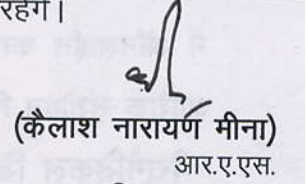 रहेंगे।
(कैलाश नारायण मीना)
आर.ए.एस.